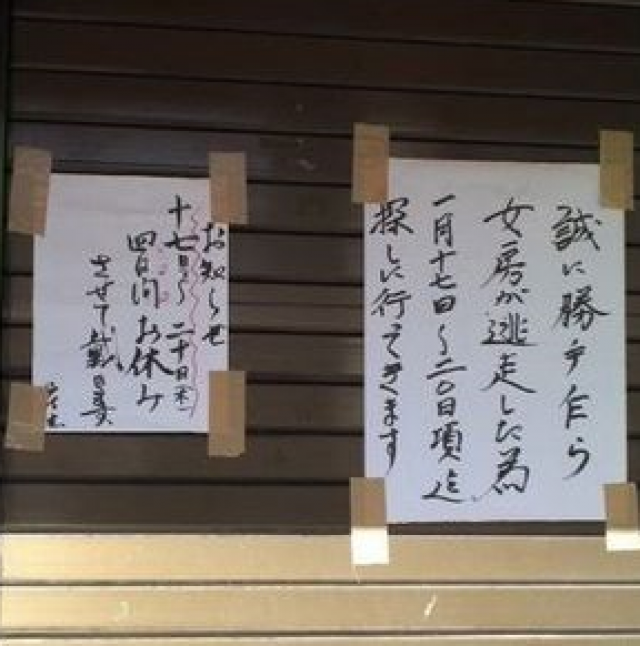 誠に勝手乍ら
女房が逃走した為
一月十七日〜二〇日項迄
探しに行ってきます
お知らせ
十七日〜二十日(木)
四日間お休み
させて戴きます
店主